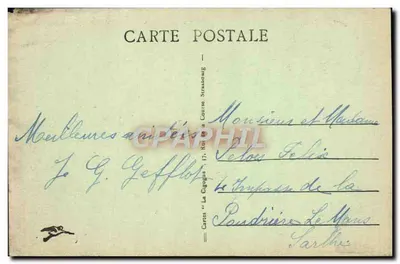 CARTE POSTALE
Meilleures amitiés
J. G. Gefflot
Cartes "La Cigogne" 17, Rue de Course Strasbourg
CARTAPHIL
Monsieur et Madame
Felix
Impasse de la
Poudrière Le Mans
Sarthe